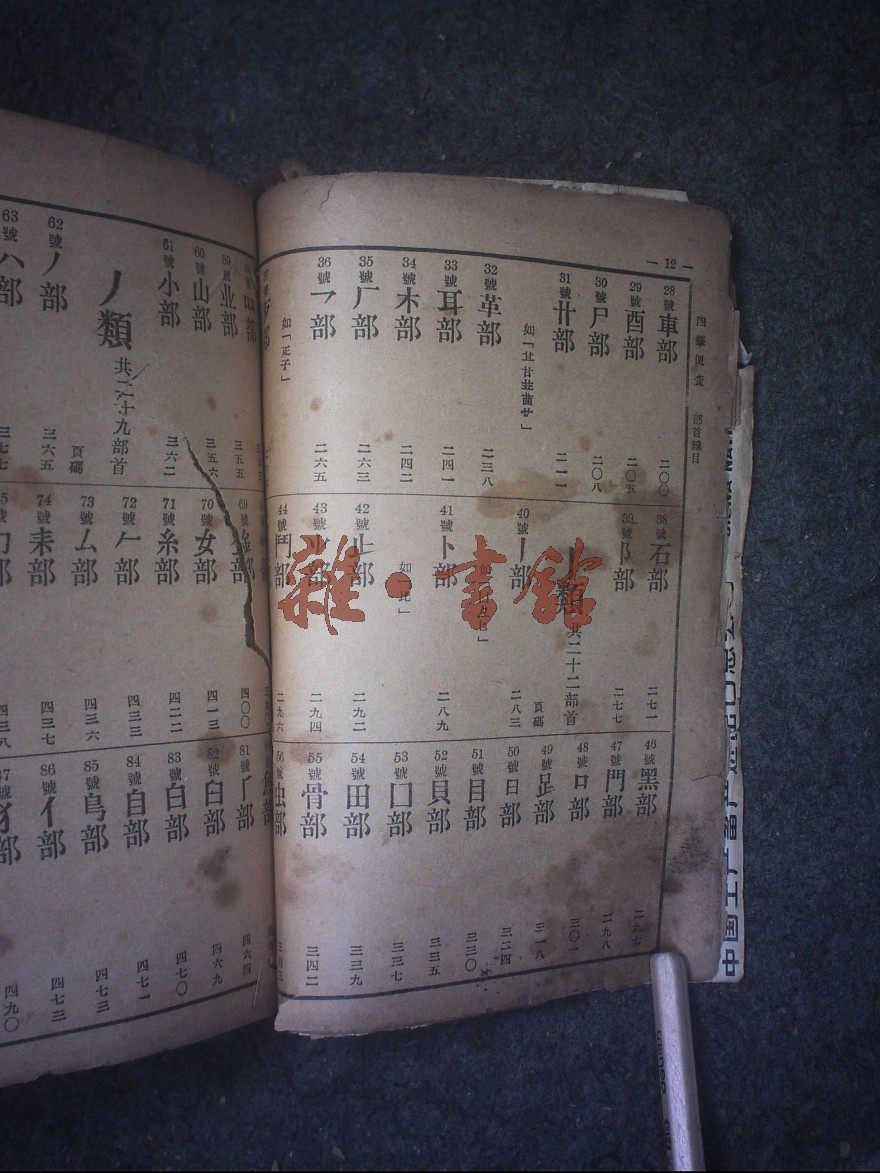 — 12 —
四筆便查 部首總目
28號車部 二〇〇
29號酉部 二〇五
30號尸部 二〇八
31號廿部 二一一
32號革部 二三八
33號耳部 二四一
34號木部 二四二
35號厂部 二六三
36號乛部 二六五
如「疋子」
38號石部 二七一
39號阝部 二七七
類 共二十二部首
頁碼
40號丨部 二八三
41號卜部 二八九
42號止部 二九二
43號部 二九四
44號鬥部 二九六
46號黑部 二九七
47號門部 二九八
48號口部 三〇一
49號足部 三一八
50號日部 三二四
51號目部 三三〇
52號貝部 三三五
53號囗部 三三七
54號田部 三三九
55號骨部 三四二
56號虫部
雜·書館
59號业部 三五五
60號山部 三五六
61號小部 三六二
丿類 共二十九部首
頁碼
62號丿部 三六五
63號八部 三七七
69號部 四〇〇
70號女部 四一三
71號糸部 四二二
72號𠂉部 四三三
73號厶部 四三六
74號耒部 四三七
四三八
81號部 四六四
82號臼部 四六九
83號白部 四七〇
84號自部 四七一
85號鳥部 四七三
86號亻部 四七三
部 四九〇
中國工